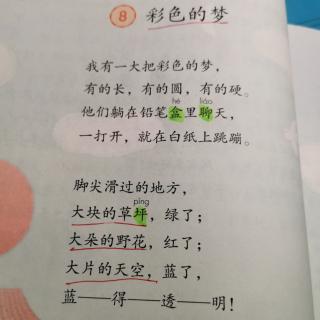 8 彩色的梦
我有一大把彩色的梦，
有的长，有的圆，有的硬。
hé liáo
他们躺在铅笔盒里聊天，
一打开，就在白纸上跳蹦。
脚尖滑过的地方，
píng
大块的草坪，绿了；
大朵的野花，红了；
大片的天空，蓝了，
蓝——得——透——明！